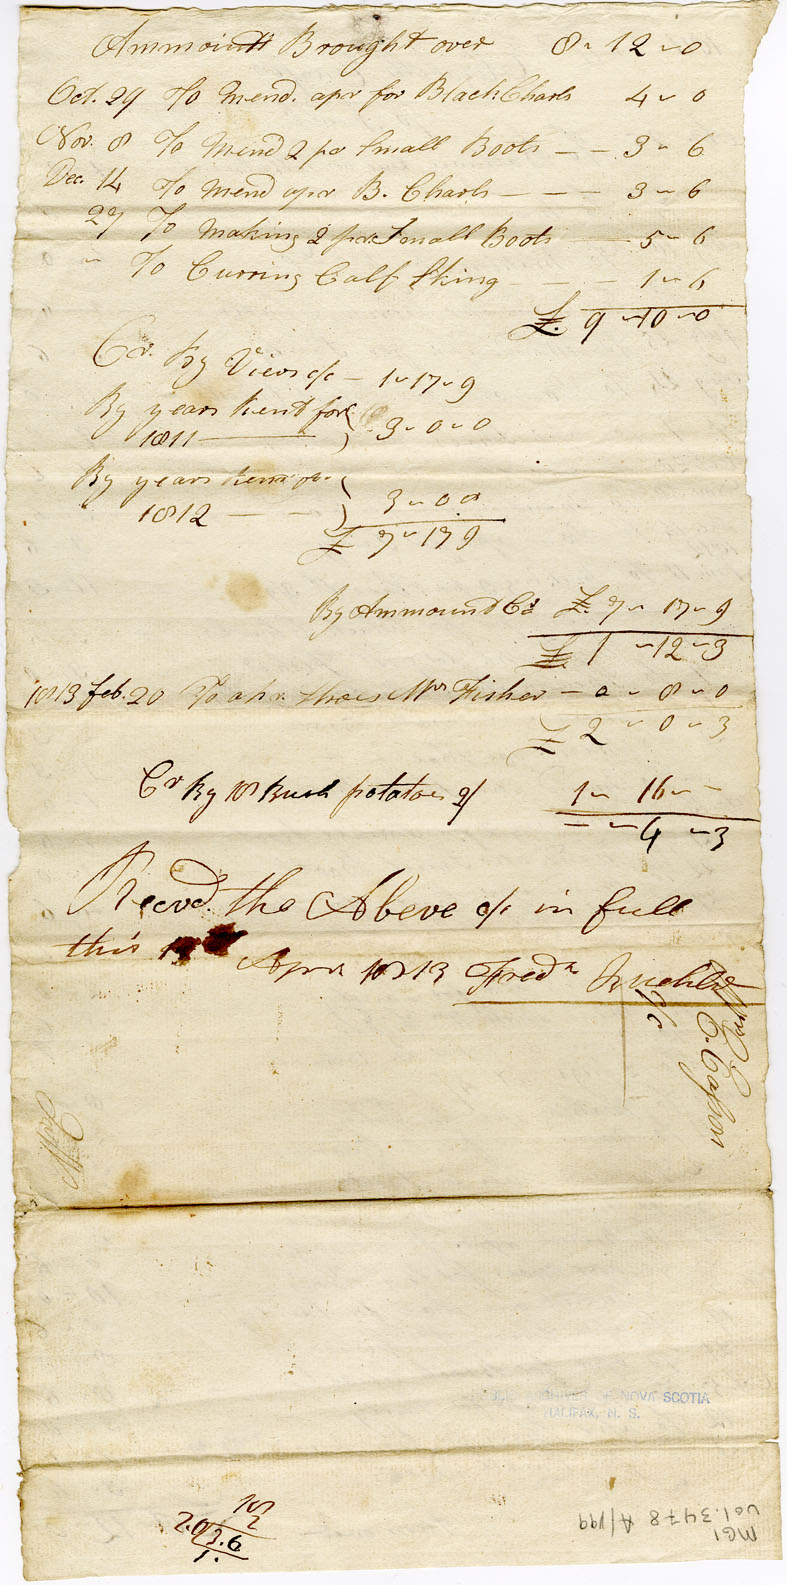 Ammountt Brought over 8 ~ 12 ~ 0
Oct. 29 To mend. apr for Black Charls 4 ~ 0
Nov. 8 To Mend 2 pr Small Boots — — 3 ~ 6
Dec. 14 To mend apr B. Charls — — — 3 ~ 6
27 To making 2 pr Small Boots — 5 ~ 6
" To Curring Calf Sking — — — 1 ~ 6
£. 9 ~ 10 ~ 0
Cr. By — 1 ~ 17 ~ 9
By years Rent for
1811 — 3 ~ 0 ~ 0
By years Rent for
1812 — — 3 ~ 0 0
£ 7 ~ 17 9
By Ammound Cd £. 7 ~ 17 ~ 9
£. 1 ~ 12 ~ 3
1813 Feb. 20 To apr. Shoes Mrs Fisher — 0 ~ 8 ~ 0
£ 2 ~ 0 ~ 3
Cr By 18 Bush potatoes 2/ 1 ~ 16 ~ -
= ~ 4 ~ 3
Recvd. the Above a/c in full
this Apr 1813 Fredk
a/c
NOVA SCOTIA
HALIFAX, N. S.
18
2
2.0/3.6
1.
MG1
Vol. 3478 A/199